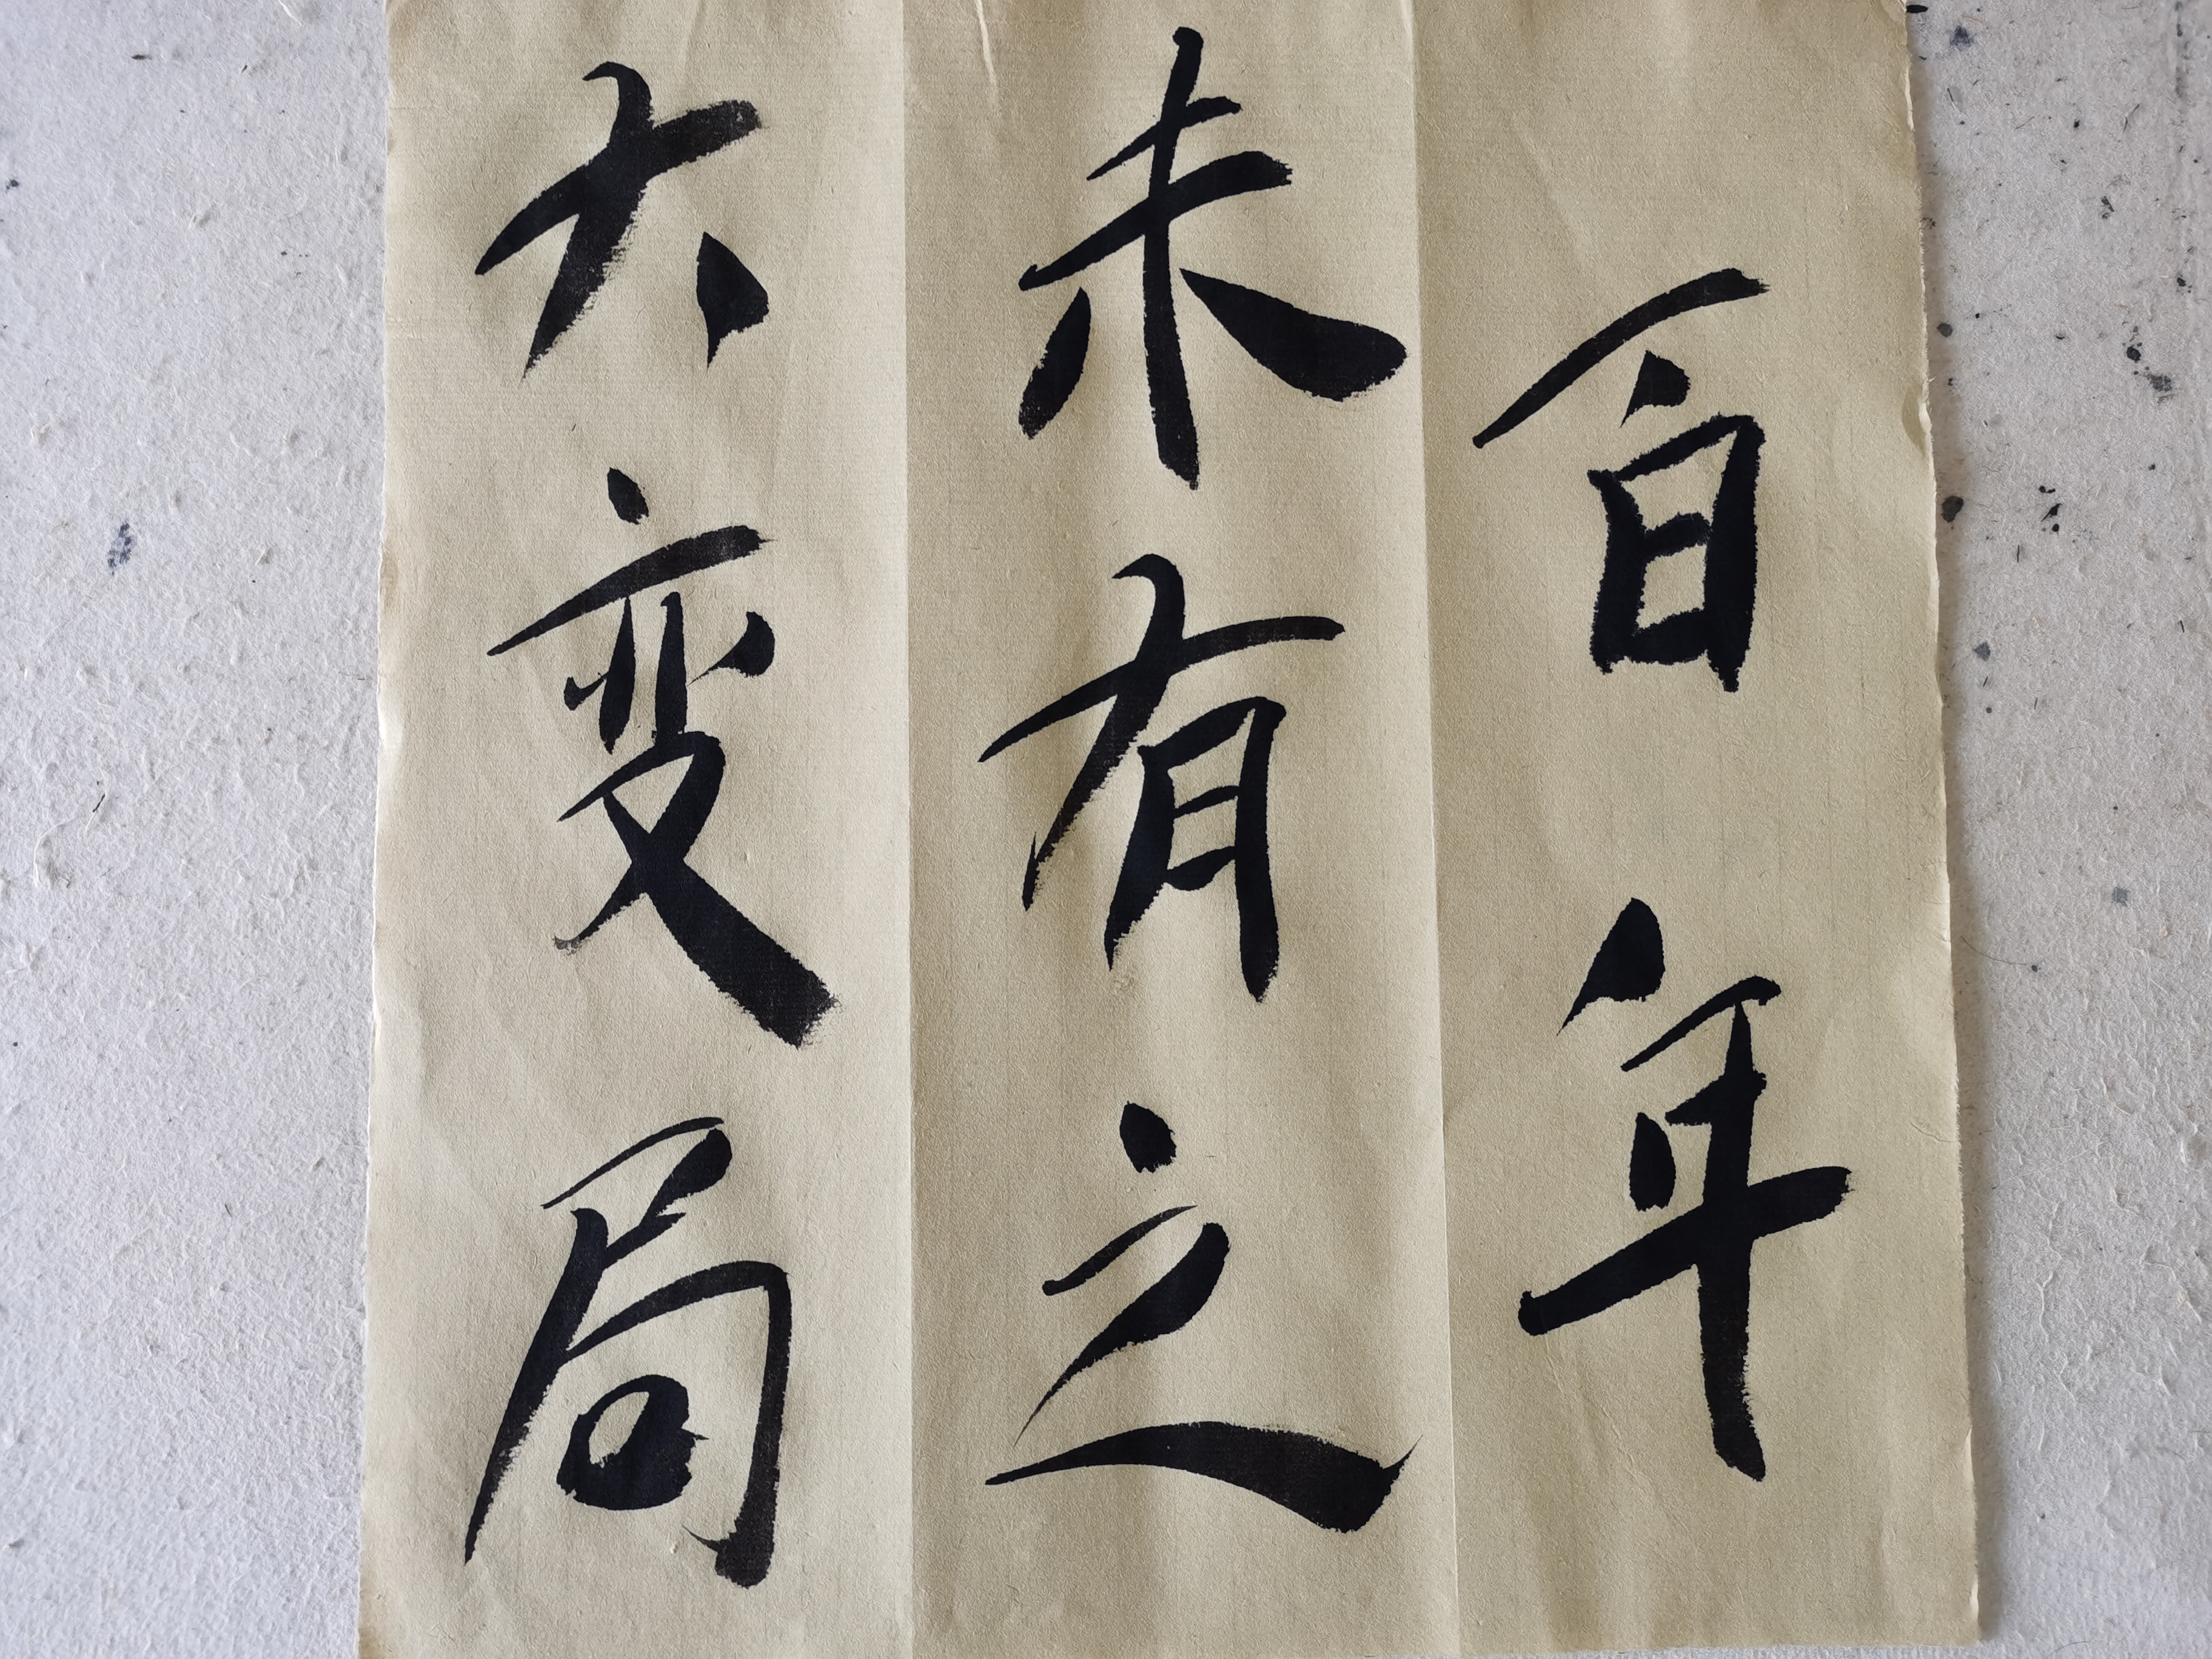 百年
未有之
大变局